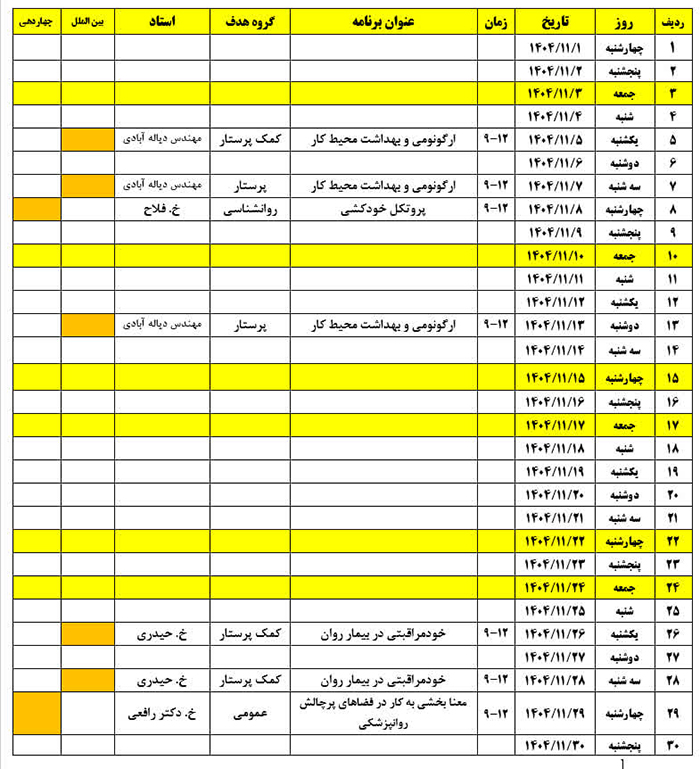 ردیف روز تاریخ زمان عنوان برنامه گروه هدف استاد بین الملل چهاردهی
۱ چهارشنبه ۱۴۰۴/۱۱/۱
۲ پنجشنبه ۱۴۰۴/۱۱/۲
۳ جمعه ۱۴۰۴/۱۱/۳
۴ شنبه ۱۴۰۴/۱۱/۴
۵ یکشنبه ۱۴۰۴/۱۱/۵ ۹-۱۲ ارگونومی و بهداشت محیط کار کمک پرستار مهندس دیاله آبادی
۶ دوشنبه ۱۴۰۴/۱۱/۶
۷ سه شنبه ۱۴۰۴/۱۱/۷ ۹-۱۲ ارگونومی و بهداشت محیط کار پرستار مهندس دیاله آبادی
۸ چهارشنبه ۱۴۰۴/۱۱/۸ ۹-۱۲ پروتکل خودکشی روانشناسی خ. فلاح
۹ پنجشنبه ۱۴۰۴/۱۱/۹
۱۰ جمعه ۱۴۰۴/۱۱/۱۰
۱۱ شنبه ۱۴۰۴/۱۱/۱۱
۱۲ یکشنبه ۱۴۰۴/۱۱/۱۲
۱۳ دوشنبه ۱۴۰۴/۱۱/۱۳ ۹-۱۲ ارگونومی و بهداشت محیط کار پرستار مهندس دیاله آبادی
۱۴ سه شنبه ۱۴۰۴/۱۱/۱۴
۱۵ چهارشنبه ۱۴۰۴/۱۱/۱۵
۱۶ پنجشنبه ۱۴۰۴/۱۱/۱۶
۱۷ جمعه ۱۴۰۴/۱۱/۱۷
۱۸ شنبه ۱۴۰۴/۱۱/۱۸
۱۹ یکشنبه ۱۴۰۴/۱۱/۱۹
۲۰ دوشنبه ۱۴۰۴/۱۱/۲۰
۲۱ سه شنبه ۱۴۰۴/۱۱/۲۱
۲۲ چهارشنبه ۱۴۰۴/۱۱/۲۲
۲۳ پنجشنبه ۱۴۰۴/۱۱/۲۳
۲۴ جمعه ۱۴۰۴/۱۱/۲۴
۲۵ شنبه ۱۴۰۴/۱۱/۲۵
۲۶ یکشنبه ۱۴۰۴/۱۱/۲۶ ۹-۱۲ خودمراقبتی در بیمار روان کمک پرستار خ. حیدری
۲۷ دوشنبه ۱۴۰۴/۱۱/۲۷
۲۸ سه شنبه ۱۴۰۴/۱۱/۲۸ ۹-۱۲ خودمراقبتی در بیمار روان کمک پرستار خ. حیدری
۲۹ چهارشنبه ۱۴۰۴/۱۱/۲۹ ۹-۱۲ معنا بخشی به کار در فضاهای پرچالش
روانپزشکی عمومی خ. دکتر رافعی
۳۰ پنجشنبه ۱۴۰۴/۱۱/۳۰